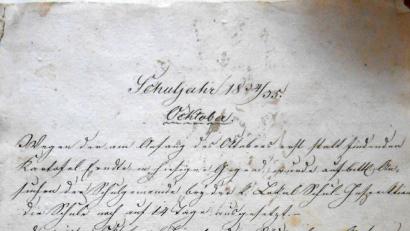 Schuljahr 1834/35.
Ocktober.
Wegen der am Anfang des Oktobers erst statt findenden
Kartofel Erndte in hiesiger Gegend, wurde auf das An-
suchen der Schulgemeinde bey der k. Lokal Schul Inspektion
die Schule noch auf 14 Tage ausgesetzt.